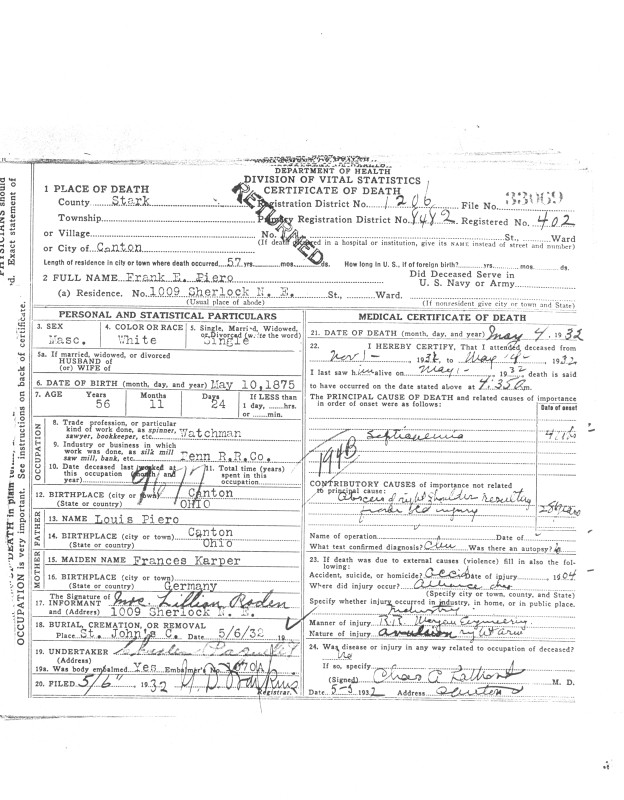 DEPARTMENT OF HEALTH
DIVISION OF VITAL STATISTICS
CERTIFICATE OF DEATH
RETURNED
1 PLACE OF DEATH
County Stark
Registration District No. 1206 File No. 33069
Township Primary Registration District No. 8482 Registered No. 402
or Village No. St., Ward
(If death occurred in a hospital or institution, give its NAME instead of street and number)
or City of Canton
Length of residence in city or town where death occurred 57 yrs. mos. ds. How long in U. S., if of foreign birth? yrs. mos. ds.
2 FULL NAME Frank E. Piero
Did Deceased Serve in
U. S. Navy or Army
(a) Residence. No. 1009 Sherlock N. E. St., Ward.
(Usual place of abode) (If nonresident give city or town and State)
PERSONAL AND STATISTICAL PARTICULARS
3. SEX Masc.
4. COLOR OR RACE White
5. Single, Married, Widowed, or Divorced (write the word) Single
5a. If married, widowed, or divorced
HUSBAND of
(or) WIFE of
6. DATE OF BIRTH (month, day, and year) May 10, 1875
7. AGE Years 56 Months 11 Days 24 If LESS than 1 day, hrs. or min.
OCCUPATION
8. Trade, profession, or particular
kind of work done, as spinner,
sawyer, bookkeeper, etc. Watchman
9. Industry or business in which
work was done, as silk mill
saw mill, bank, etc. Penn R.R.Co.
10. Date deceased last worked at
this occupation (month and
year)
11. Total time (years)
spent in this
occupation
12. BIRTHPLACE (city or town) Canton
(State or country) OHIO
FATHER
13. NAME Louis Piero
14. BIRTHPLACE (city or town) Canton
(State or country) Ohio
MOTHER
15. MAIDEN NAME Frances Karper
16. BIRTHPLACE (city or town)
(State or country) Germany
17. The Signature of INFORMANT Mrs. Lillian Roden
and (Address) 1009 Sherlock N. E.
18. BURIAL, CREMATION, OR REMOVAL
Place St. John's C. Date 5/6/32 19
19. UNDERTAKER
(Address)
19a. Was body embalmed Yes Embalmer's No. 2070A
20. FILED 5/6 1932
Registrar.
MEDICAL CERTIFICATE OF DEATH
21. DATE OF DEATH (month, day, and year) May 4, 1932
22. I HEREBY CERTIFY, That I attended deceased from
Nov 1 - to May 4 - 1932
I last saw him alive on May 1 - 1932 death is said
to have occurred on the date stated above at 4:35 a m.
The PRINCIPAL CAUSE OF DEATH and related causes of importance
in order of onset were as follows:
Date of onset
Septicaemia
194B
CONTRIBUTORY CAUSES of importance not related
to principal cause:
Abscess of right shoulder resulting
from old injury 28 years
Name of operation Date of
What test confirmed diagnosis? Clin Was there an autopsy?
23. If death was due to external causes (violence) fill in also the fol-
lowing:
Accident, suicide, or homicide? Accid Date of injury 1904
Where did injury occur? Alliance Oho
(Specify city or town, county, and State)
Specify whether injury occurred in industry, in home, or in public place.
Industry
Manner of injury R.R.
Nature of injury avulsion
24. Was disease or injury in any way related to occupation of deceased?
If so, specify
(Signed) Chas A M. D.
Date 1932 Address Canton
OCCUPATION is very important. See instructions on back of certificate.
PHYSICIANS should
Exact statement of
DEATH in plain